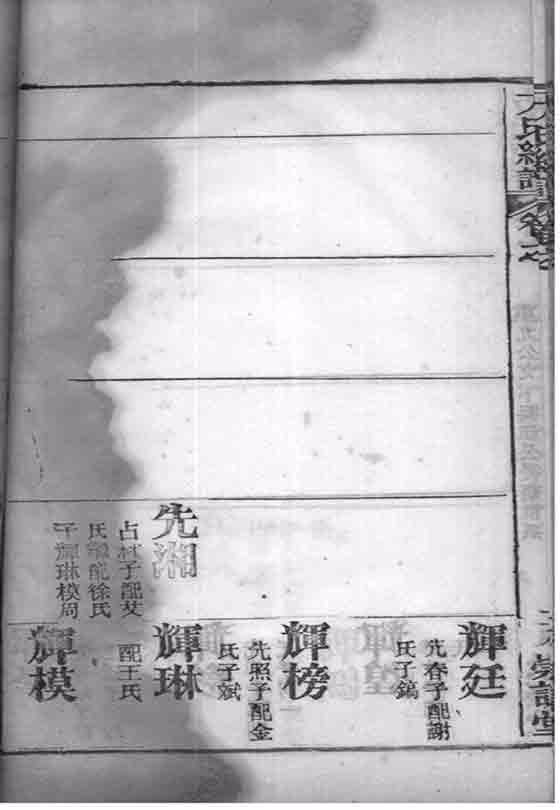 氏譜
卷七
輝廷
先春子配謝
氏子鎬
輝榜
先照子配金
氏子斌
先湘
占林子配艾
氏繼配徐氏
子輝琳模周
輝琳
配王氏
輝模